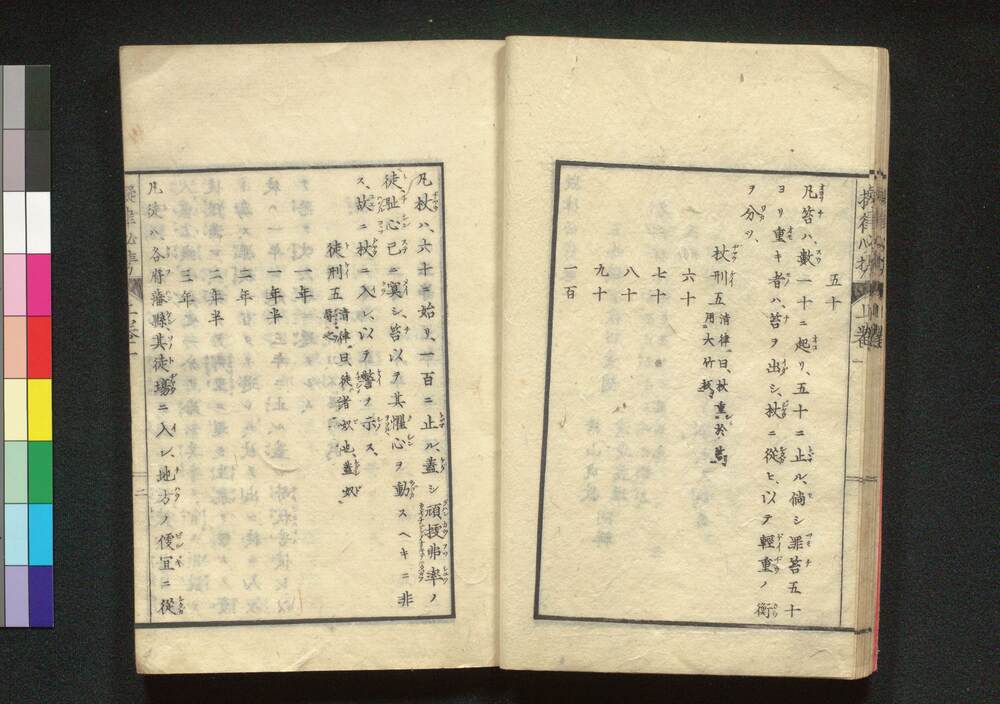 五十
凡笞ハ、數一十ニ起リ、五十ニ止ル、倘シ罪笞五十
ヨリ重キ者ハ、笞ヲ出シ、杖ニ從ヒ、以テ輕重ノ衡
ヲ分ツ、
杖刑五 清律ニ曰、杖重於笞、用大竹板、
六十
七十
八十
九十
一百
凡杖ハ、六十ニ始リ、一百ニ止ル、蓋シ頑梗弗率ノ
徒、恥心已ニ冥シ、笞以テ其懼心ヲ動スヘキニ非
ス、故ニ杖ニ入レ、以テ警ヲ示ス、
徒刑五 清律ニ曰、徒者奴也、蓋奴辱之、
一年
一年半
二年
二年半
三年
凡徒ハ、各府藩縣其徒場ニ入レ、地方ノ便宜ニ從
二